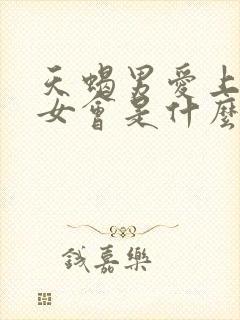 天蝎男愛上
女會是什麼
錢嘉樂